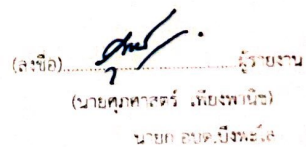 (ลงชื่อ)....................ผู้รายงาน
(นายศุภศาสตร์ เพียงพานิช)
นายก อบต.บึงพะไล